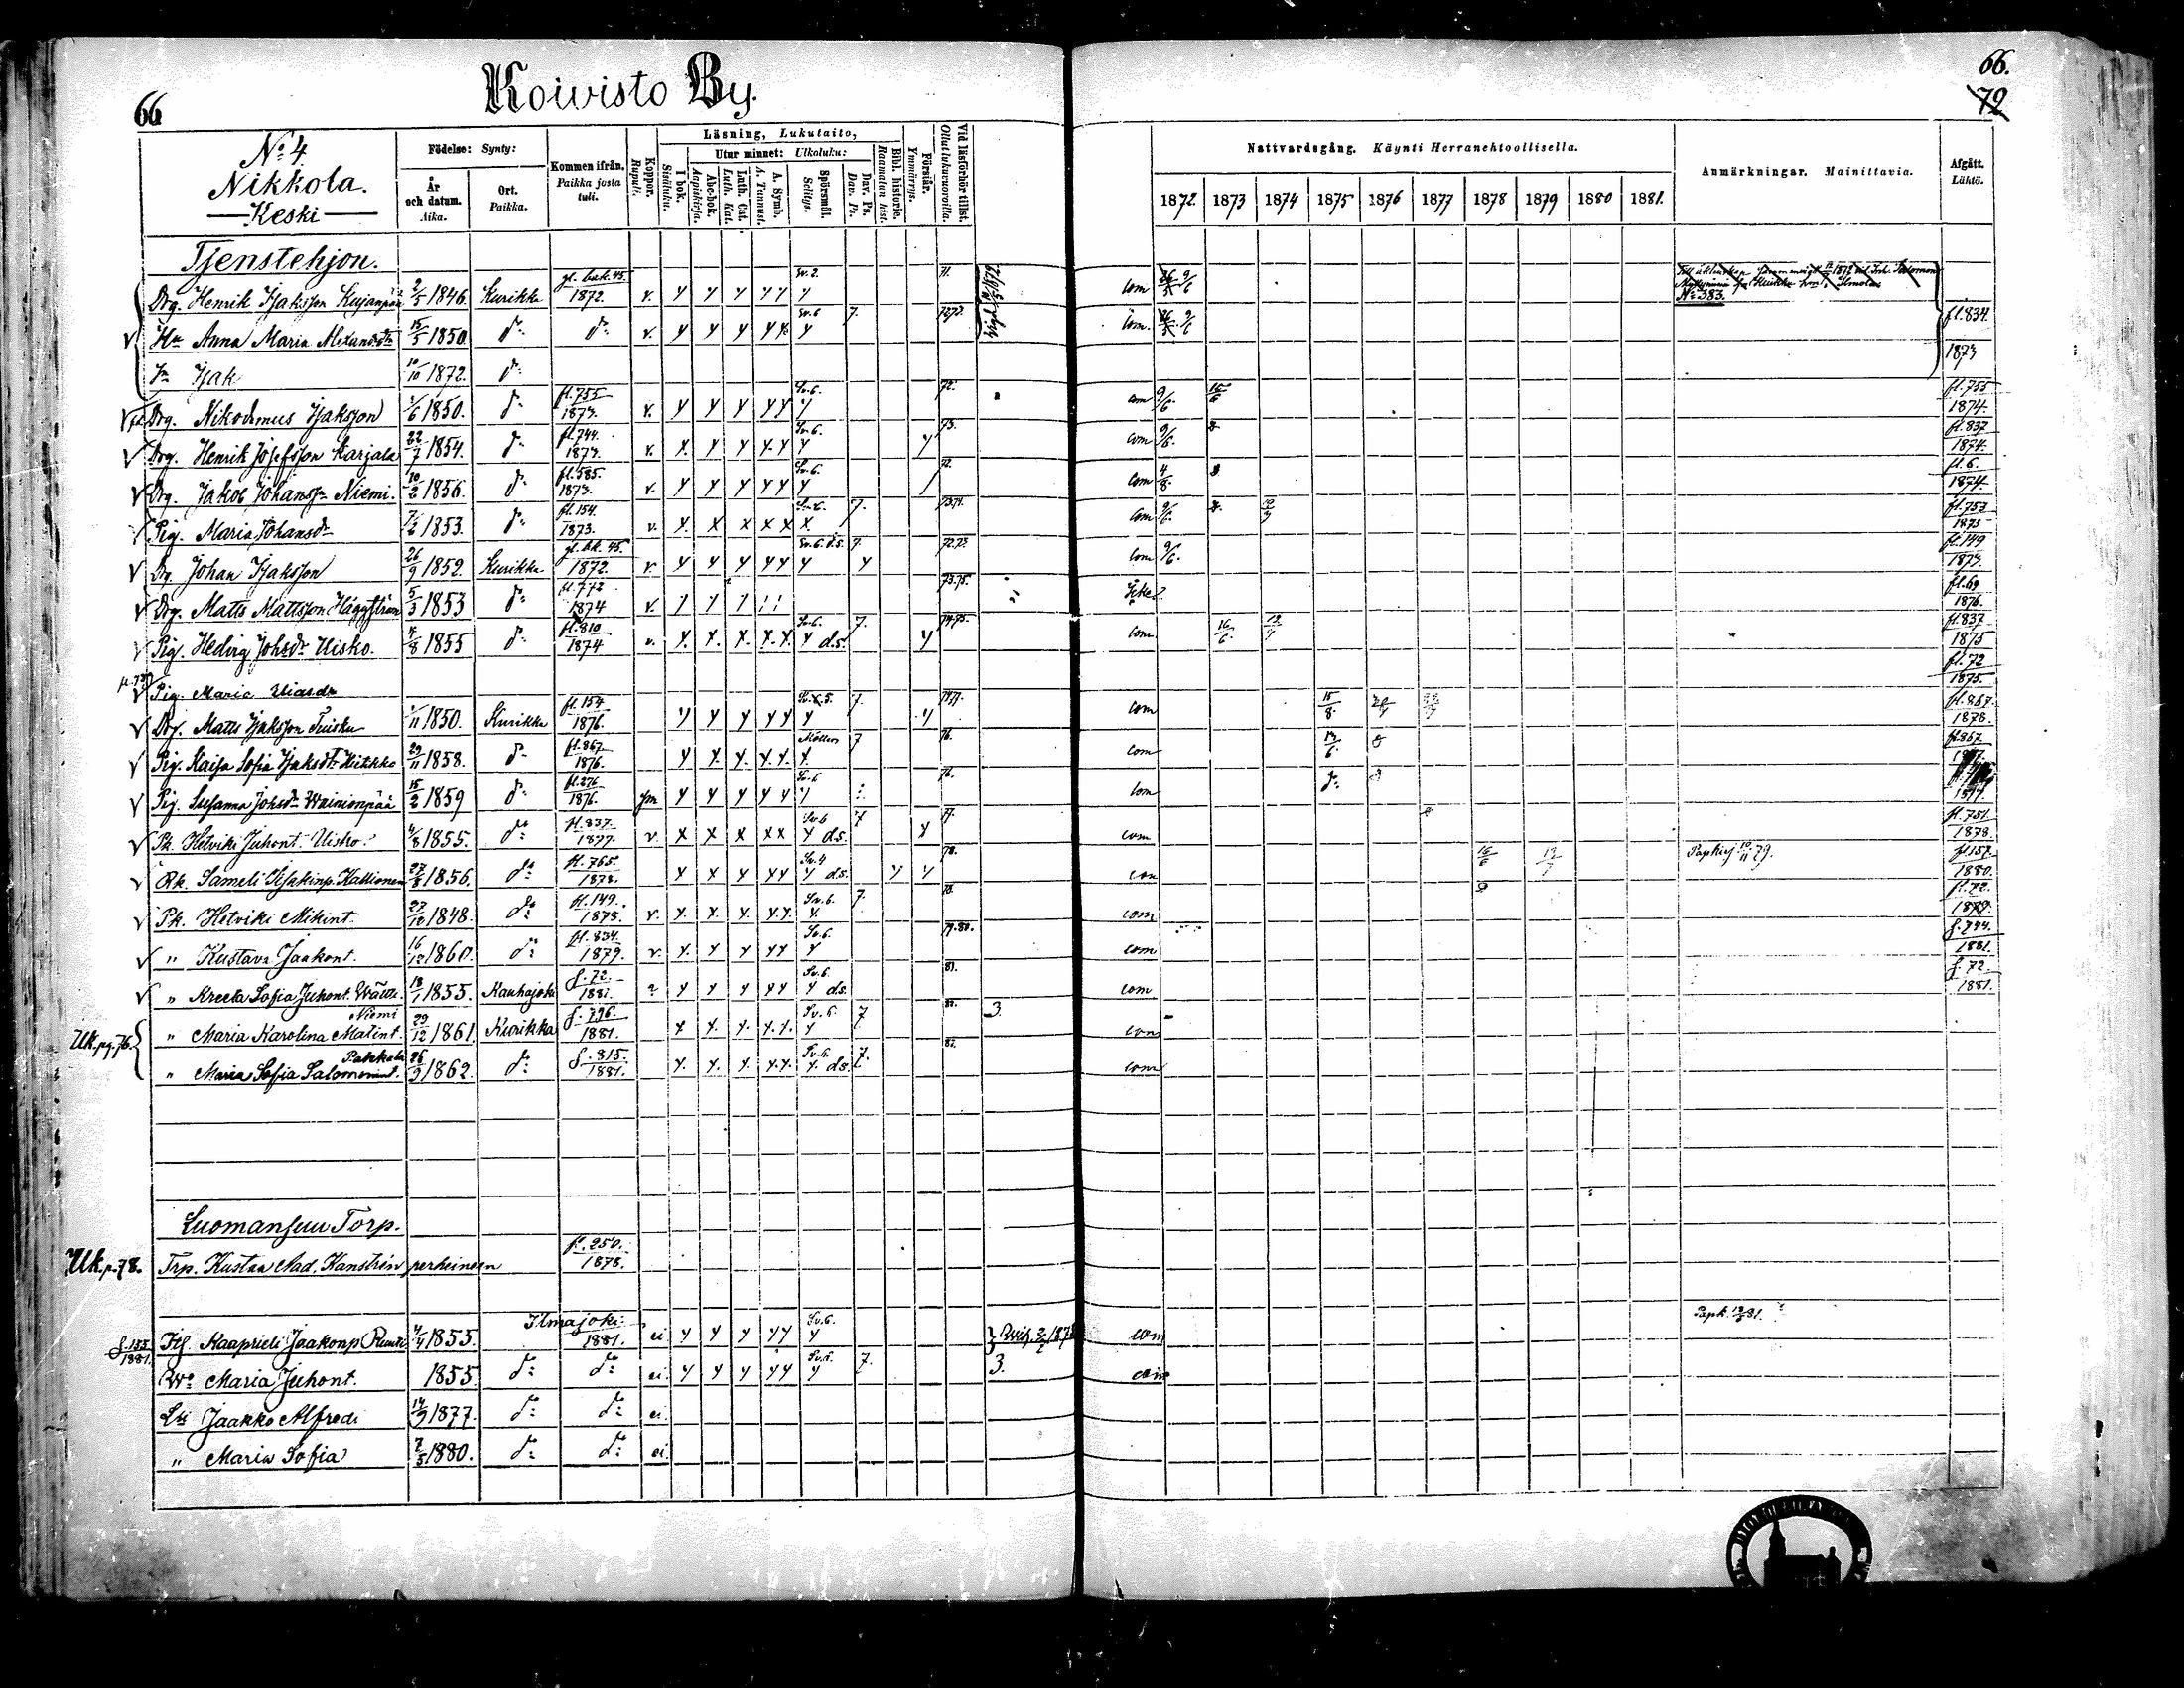 66
Koivisto By.
66.
72
No 4
Nikkola.
Keski
Födelse: Synty:
År och datum. Aika.
Ort. Paikka.
Kommen ifrån. Paikka josta tuli.
Koppor. Rupuli.
Läsning, Lukutaito,
I bok. Sisäluku.
Utur minnet: Ulkoluku:
Abc-bok. Aapiskirja.
Luth. Cat. Luth. Kat.
A. Symb. A. Tunnust.
Spörsmål. Selitys.
Dav. Ps. Dav. Ps.
Bibl. historie. Raamatun hist.
Förstår. Ymmärrys.
Vid läsförhör tillst. Ollut lukuvuoroilla.
Nattvardsgång. Käynti Herranehtoollisella.
1872. 1873 1874 1875 1876 1877 1878 1879 1880 1881.
Anmärkningar. Mainittavia.
Afgått. Lähtö.
Tjenstehjon.
Drg. Henrik Isaksson Kujanpää 2/5 1846. Kurikka gl. bok. 45. 1872. v. y y y y y Sv. 2. y 71. com 9/6 No 383.
Hu Anna Maria Alexandsdr 15/5 1850. do do v. y y y y y Sv. 6 y 7. 72.73. com. 9/6 fl. 834. 1873
Sn Isak 10/10 1872. do
Drg. Nikodemus Isaksson 1/6 1850. do fl. 755 1873. v. y y y y y Sv. 6. y 72. com 9/6. fl. 755 1874.
Drg. Henrik Josefsson Karjala 22/7 1854. do fl. 744. 1873. v. y y y y y Sv. 6. y y 73. com 9/6. fl. 837 1874.
Drg. Jakob Johansson Niemi. 10/2 1856. do fl. 585. 1873. v. y y y y y Sv. 6. y 72. com 4/8 fl. 6. 1874.
Pig. Maria Johansdr 1853. do fl. 154. 1873. v. x x x x x x 7. 73.74. com 9/6. fl. 753 1875
Dg. Johan Isaksson 26/9 1852. Kurikka gl. bk. 45. 1872. v y y y y y Sv. 6. d.s. y 7. y 72.73 com 9/6. fl. 149 1873.
Drg. Matts Mattsson Häggström 5/3 1853 do fl. 772 1874 v. 73.75. fl. 69 1876.
Pig. Hedvig Johsdr Uisko. 4/8 1855 do fl. 810 1874 v. y y y y y Sv. 6. y d.s. 7. y 74.75. com 16/6. fl. 837 1875
Pig. Maria Eliasdr fl. 72 1875.
Drg. Matts Isaksson Tuisku 1/11 1850. Kurikka fl. 154 1876. y y y y y y 7. y com 15/8. fl. 867. 1878.
Pig. Kaisa Sofia Isaksdr Hietikko 29/11 1858. do fl. 867 1876. y y y y y y 7 76. com 13/6. fl. 867
Pig. Susanna Johsdr Wainionpää 15/2 1859 do fl. 276 1876. y y y y y Sv. 6 y 76. com do 1877.
Pk. Hetviki Juhont. Uisko. 4/8 1855. do fl. 837. 1877. v x x x x x Sv. 6 y d.s. 7 y 77. com fl. 751. 1878.
Rk. Sameli Isakinp. Kallionen 27/8 1856. do fl. 765. 1878. x x x y y Sv. 4 y d.s. y y 78. com 16/6 13/7 Papkirj 10/11 79. fl. 157. 1880.
Pk. Hetviki Mikint. 27/12 1848. do fl. 149. 1878. v. y y y y y Sv. 6. y 7. 78. com fl. 72. 1879.
" Kustava Jaakont. 16/12 1860. do fl. 834 1879. v. y y y y y Sv. 6. y 79.80. com f. 744. 1881.
" Kreeta Sofia Juhont. 18/1 1855. Kauhajoki f. 72. 1881. ? y y y y y Sv. 6. y d.s. 81. com f. 72. 1881.
Uk. pg. 76.
" Maria Karolina Matint. Niemi 29/12 1861. Kurikka f. 796. 1881. y y y y y Sv. 6. y 7 3. com
" Maria Sofia Salomonint. Pakkala 26/9 1862. do f. 815. 1881. y y y y y Sv. 6. y d.s. 7. 81. com
Luomansuu Torp.
Uk. p. 78. Trp. Kustaa Aad. Kanstrén perheineen fl. 250. 1878.
f. 155 1881. Itj. Kaaprieli Jaakonp 4/4 1855. Ilmajoki 1881. ei y y y y y Sv. 6. y 1878 com Papk. 81.
Wo Maria Juhont. 1855. do do ei. y y y y y Sv. 6. y 7. 3. com
Lsi Jaakko Alfredi 14/9 1877. do do ei.
" Maria Sofia 7/5 1880. do do ei.